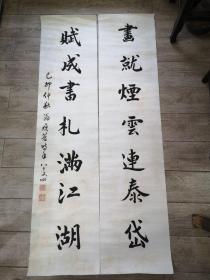 畫就煙雲連泰岱
賦成書札滿江湖
己卯仲秋